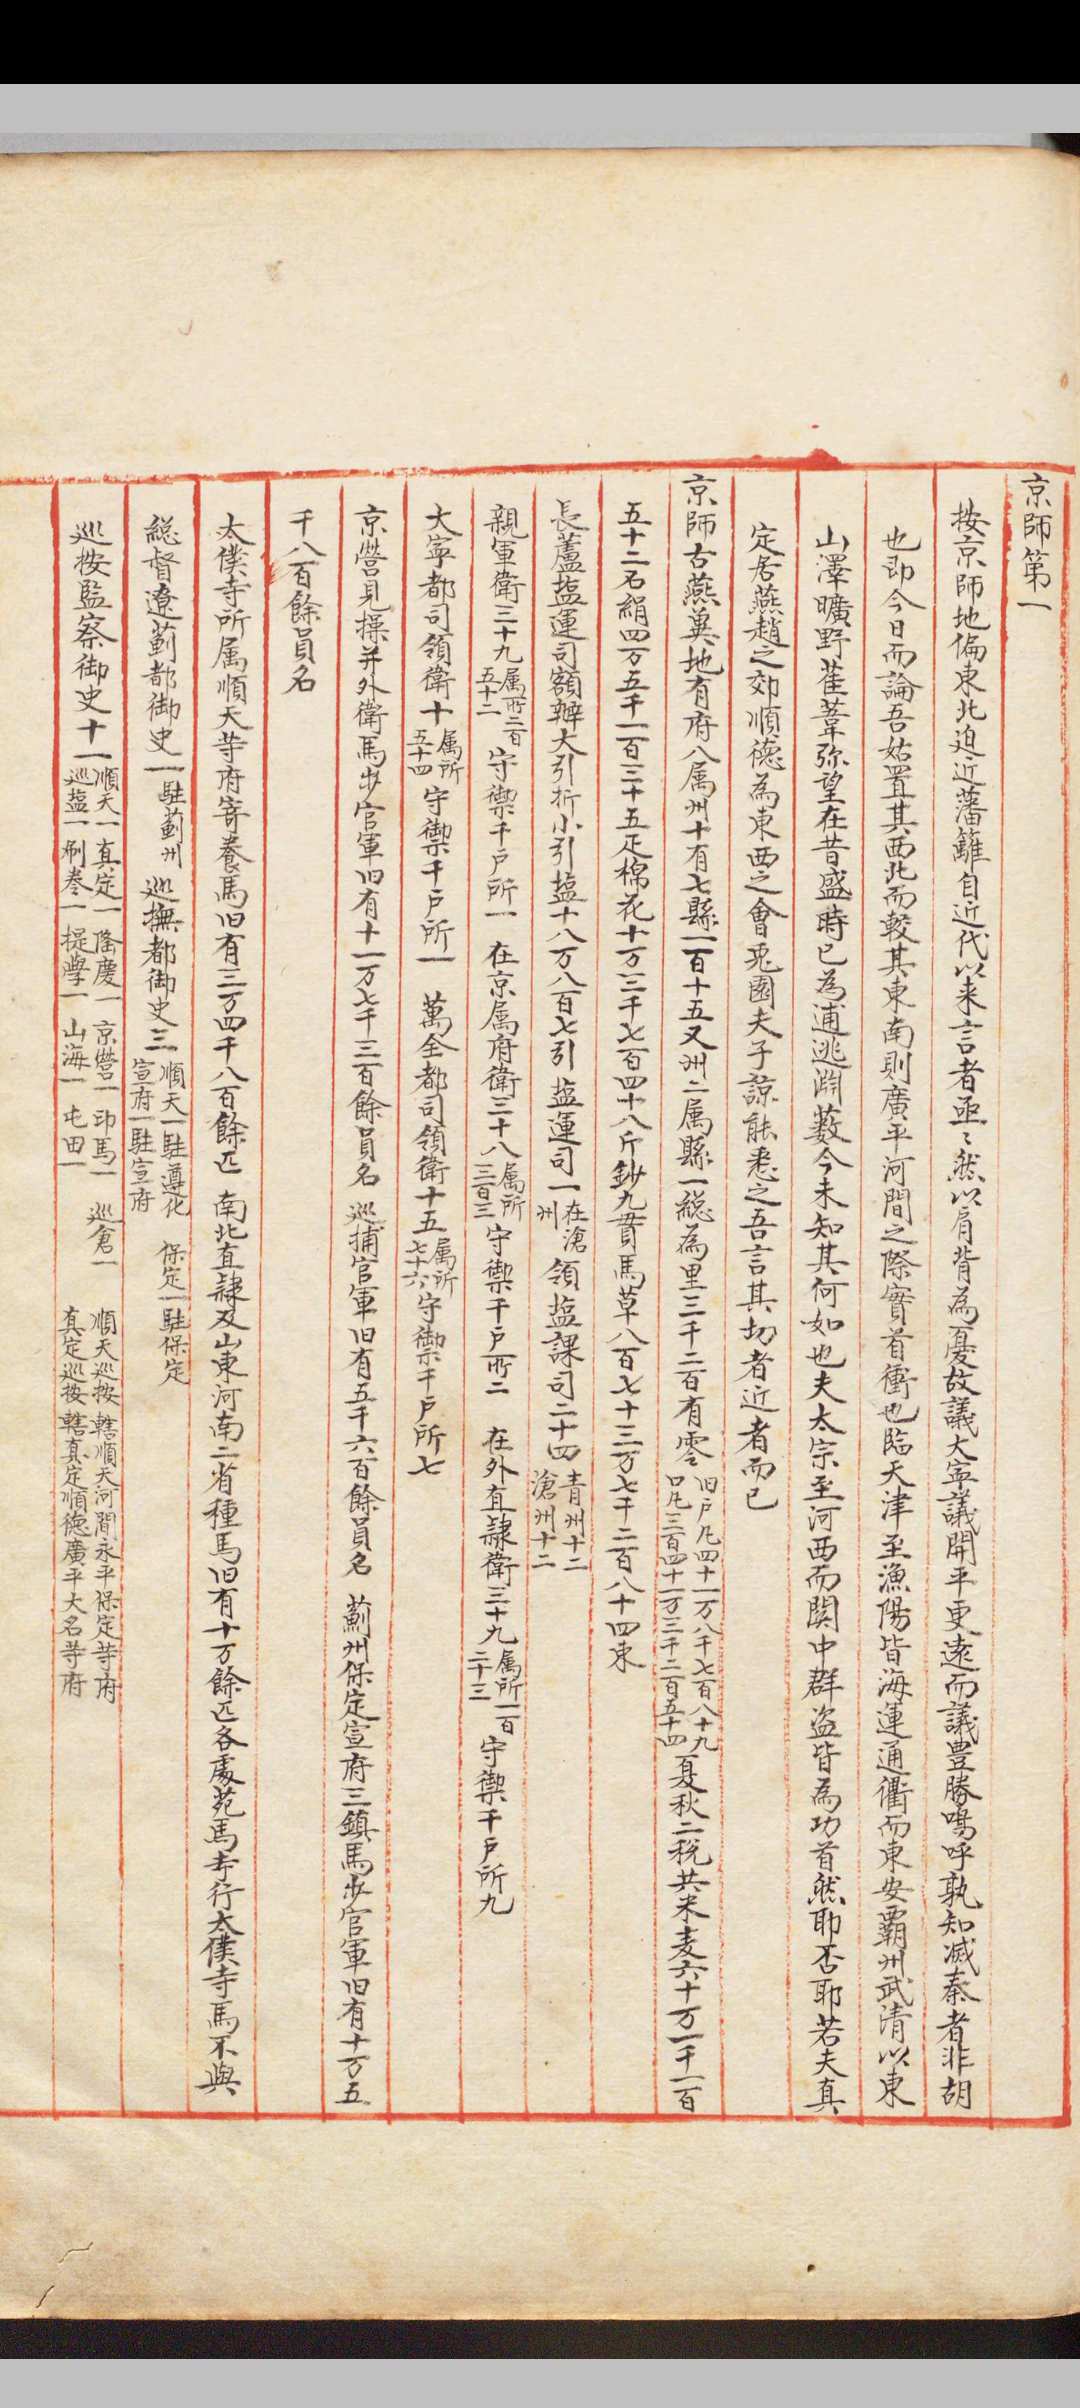 京師第一
按京師地偏東北迫近藩籬自近代以来言者亟〻然以肩背為憂故議大寧議開平更遠而議豊勝嗚呼孰知滅秦者非胡
也即今日而論吾姑置其西北而較其東南則廣平河間之際實首衝也臨天津至漁陽皆海運通衢而東安霸州武清以東
山澤曠野萑葦弥望在昔盛時已為逋逃淵薮今未知其何如也夫太宗至河西而関中群盗皆為功首然耶否耶若夫真
定居燕趙之郊順德為東西之會兎園夫子諒能悉之吾言其切者近者而已
京師古燕兾地有府八属州十有七縣一百十五又州二属縣一総為里三千二百有零旧戸凡四十一万八千七百八十九口凡三百四十一万三千二百五十四夏秋二税共米麦六十万一千一百
五十二石絹四万五千一百三十五疋棉花十万三千七百四十八斤鈔九貫馬草八百七十三万七千二百八十四束
長蘆塩運司額辦大引折小引塩十八万八百七引 塩運司一在滄州 領塩課司二十四青州十二滄州十二
親軍衛三十九属所二百五十二守禦千戸所一 在京属府衛三十八属所三百三守禦千戸所二 在外直隷衛三十九属所一百二十三守禦千戸所九
大寧都司領衛十属所五十四守禦千戸所一 萬全都司領衛十五属所七十六守禦千戸所七
京營見操并外衛馬步官軍旧有十一万七千三百餘員名 巡捕官軍旧有五千六百餘員名 薊州保定宣府三鎮馬步官軍旧有十万五
千八百餘員名
太僕寺所属順天䓁府寄養馬旧有三万四千八百餘匹 南北直隷及山東河南二省種馬旧有十万餘匹各處苑馬寺行太僕寺馬不與
総督遼薊都御史一駐薊州 巡撫都御史三順天一駐遵化 保定一駐保定宣府一駐宣府
巡按監察御史十一順天一真定一隆慶一 京營一 印馬一巡塩一刷卷一 提學一 山海一 屯田一 巡倉一 順天巡按轄順天河間永平保定䓁府真定巡按轄真定順德廣平大名䓁府